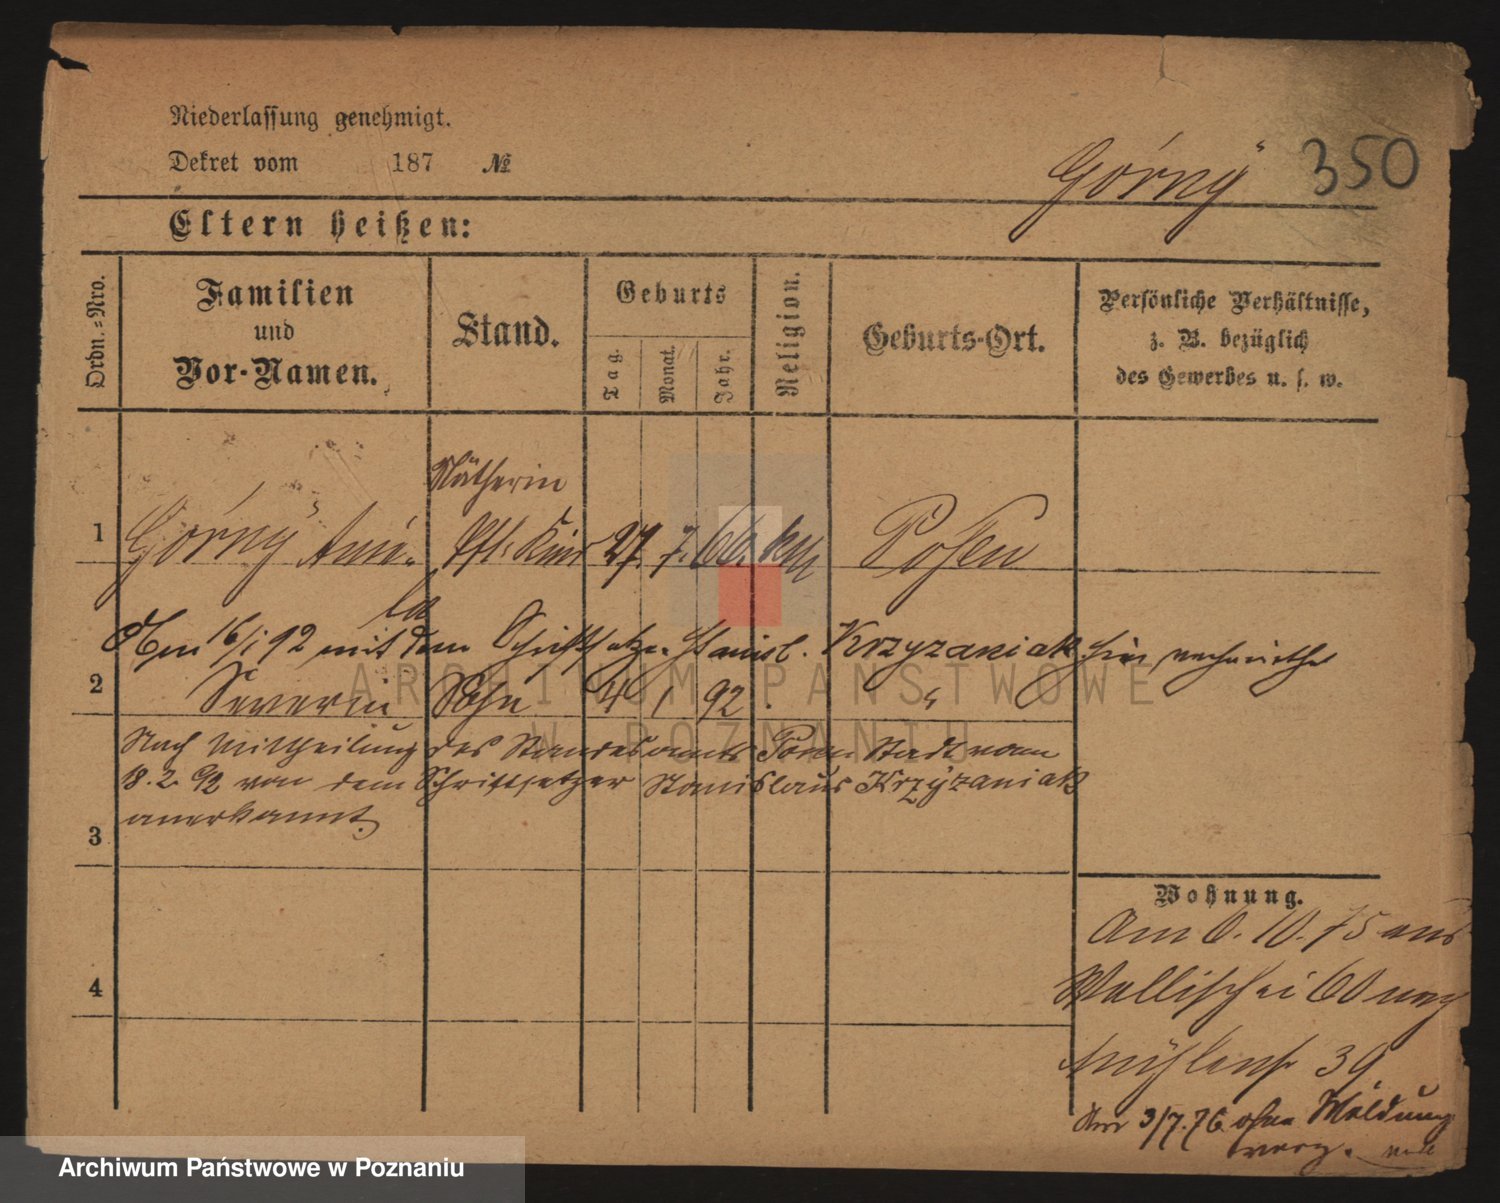 Niederlassung genehmigt.
Dekret vom 187 №
Górny 350
Eltern heißen:
Ordn.=Nro.
Familien
und
Vor-Namen.
Stand.
Geburts
Tag.
Monat.
Jahr.
Religion.
Geburts-Ort.
Persönliche Verhältnisse,
z. B. bezüglich
des Gewerbes u. s. w.
Nätherin
1 Górny 27. 7. 66. kath Posen
16/1 92 mit dem Schriftsetzer Stanisl. Krzyzaniak hier verheirathet
2 Severin Sohn 4 1 92 "
Nach Mittheilung des Standesamts Posen Stadt vom
18. 2. 92 von dem Schriftsetzer Stanislaus Krzyzaniak
anerkannt.
3
4
Wohnung.
Am 6. 10. 75 aus
Wallischei 60 nach
Mühlenstr 39
Am 3/7. 76 ohne Meldung
verz.
ARCHIWUM PAŃSTWOWE
W POZNANIU
Archiwum Państwowe w Poznaniu